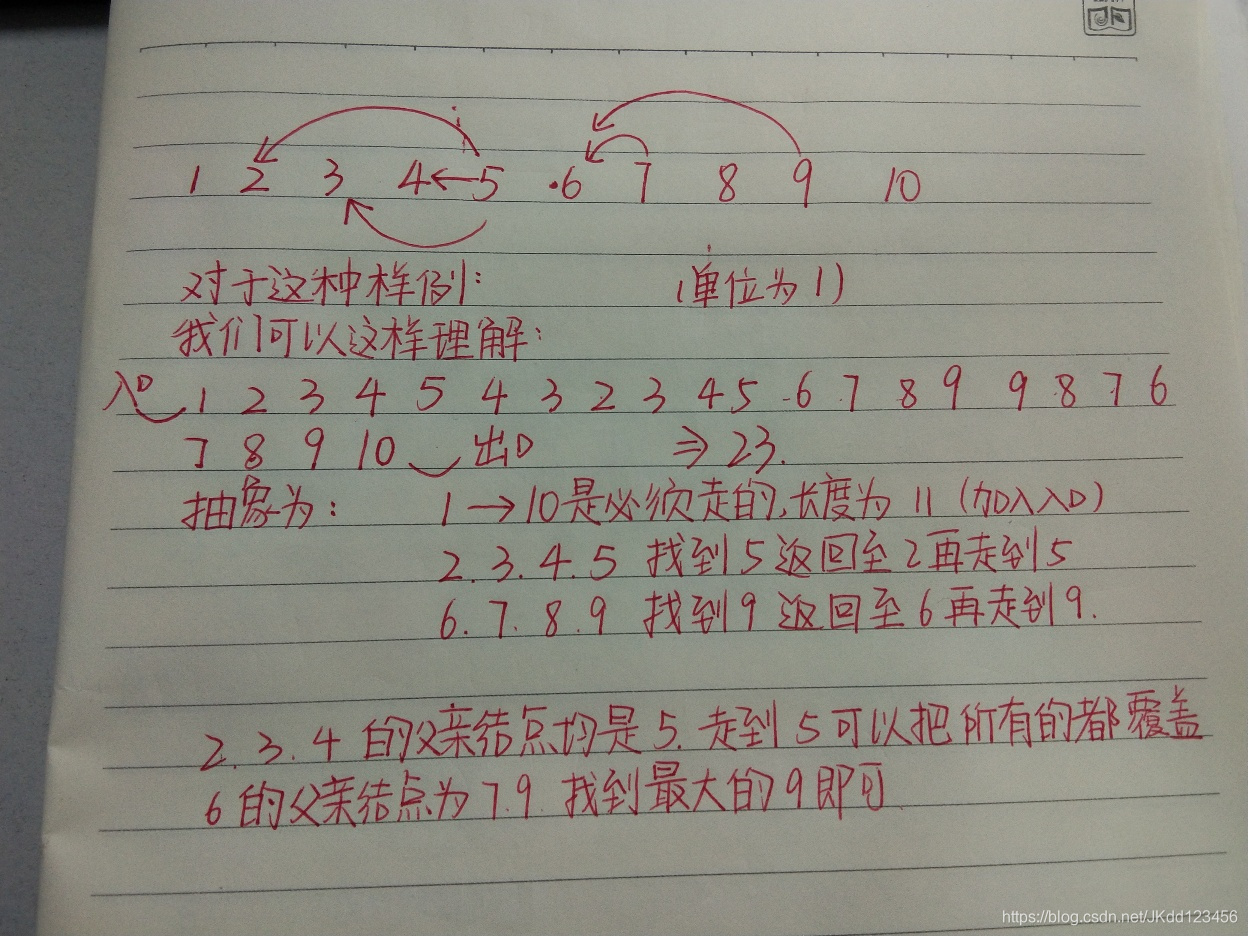 1 2 3 4←5 ·6 7 8 9 10
对于这种样例: (单位为1)
我们可以这样理解:
入口 1 2 3 4 5 4 3 2 3 4 5 6 7 8 9 9 8 7 6
7 8 9 10 出口 ⇒ 23.
抽象为: 1→10是必须走的,长度为 11 (加入入口)
2.3.4.5 找到5返回至2再走到5
6.7.8.9 找到9返回至6再走到9.
2.3.4 的父亲结点均是5.走到5可以把所有的都覆盖
6的父亲结点为7.9 找到最大的9即可
https://blog.csdn.net/JKdd123456